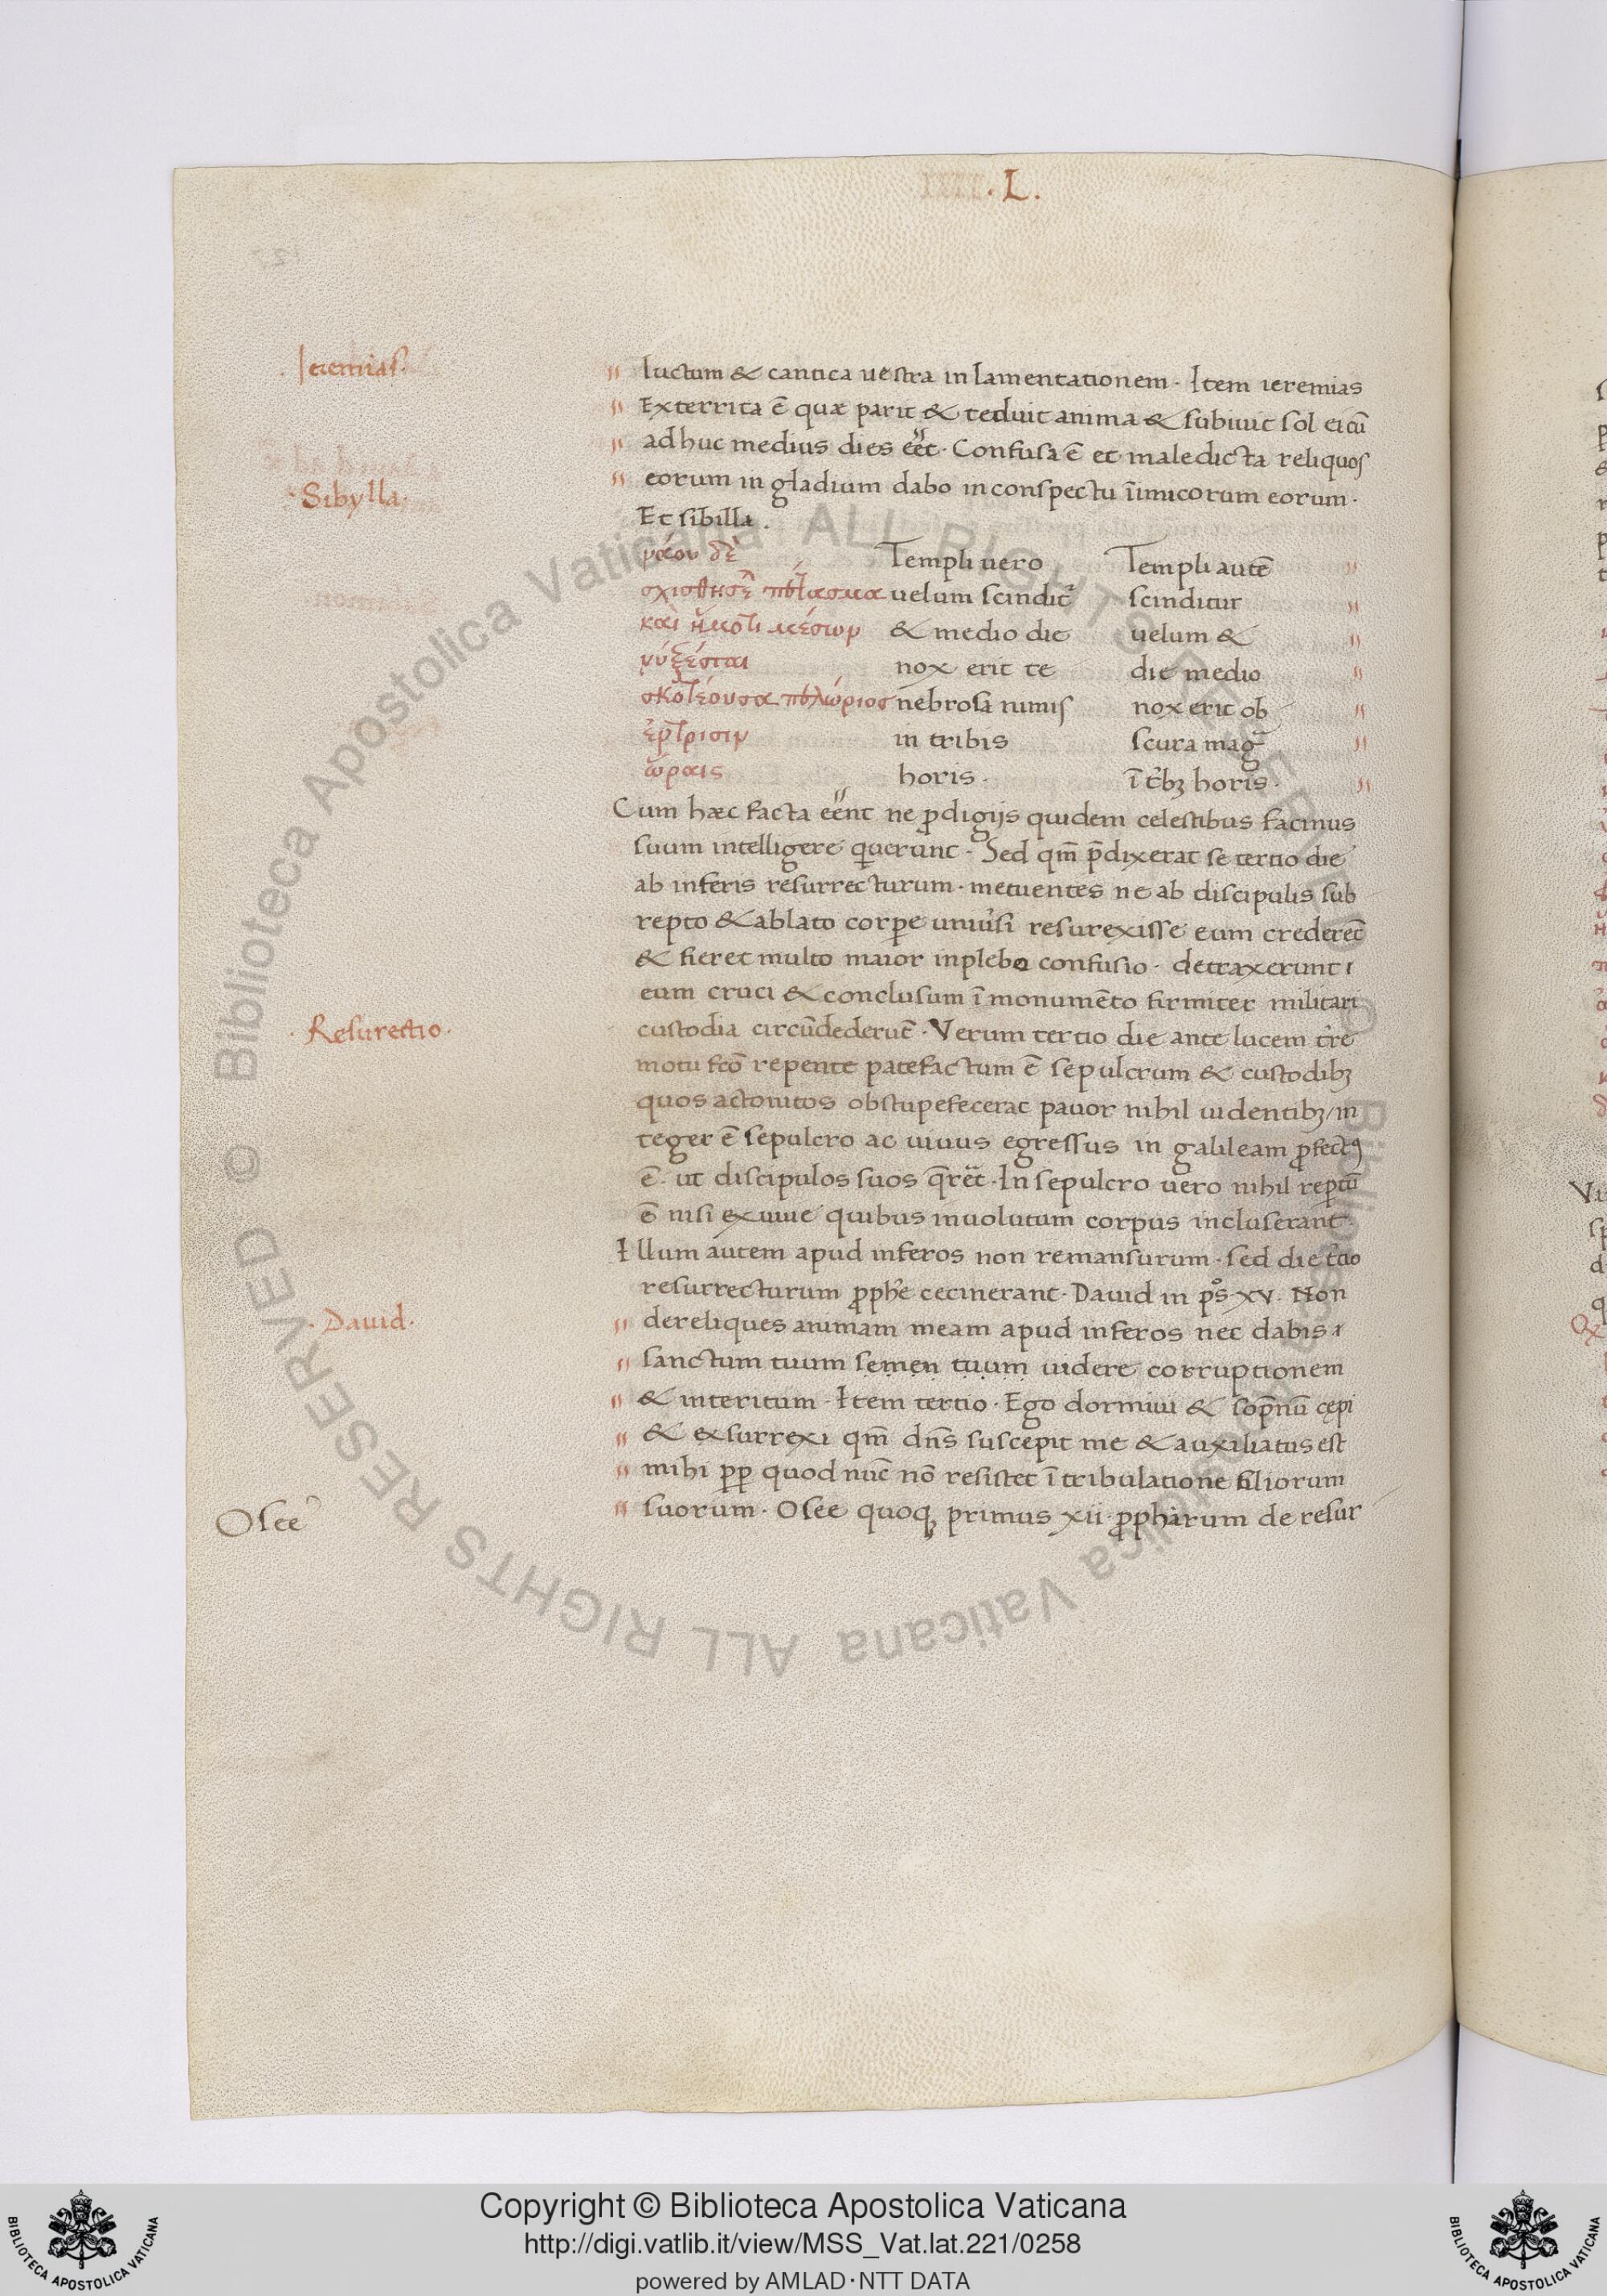 .L.
Ieremias.
luctum & cantica uestra in lamentationem. Item ieremias
Exterrita ē quæ parit & teduit anima & subiuit sol ei cū
adhuc medius dies eēt. Confusa ē et maledicta reliquos
eorum in gladium dabo in conspectu īimicorum eorum.
Sibylla.
Et sibilla.
ναόυ δὲ Templi uero Templi autē
velum scindit᷑ scinditur
καὶ ἤματι μέσωρ & medio die uelum &
νύξ έσται nox erit te die medio
σκοτέουσα πελώριος nebrosa nimis nox erit ob
ἐν τρισὶν in tribis scura mag̅
ὥραις horis. ī t͛bꝫ horis.
Cum hæc facta eēnt ne ꝓdigijs quidem celestibus facinus
suum intelligere q̇uerunt. Sed qm̄ p̄dixerat se tertio die
ab inferis resurrecturum. metuentes ne ab discipulis sub
repto & ablato corꝑe uniũsi resurexisse eum crederēt
& fieret multo maior in plebe confusio. detraxerunt
eum cruci & conclusum ī monumēto firmiter militari
Resurectio.
custodia circūdederūt. Verum tertio die ante lucem t͛re
motu fc̄o repente patefactum ē sepulcrum & custodibꝫ
quos actonitos obstupefecerat pauor nihil uidentibꝫ/ in
teger ē sepulcro ac uiuus egressus in galileam ꝓfectꝰ
ē. ut discipulos suos q̄rēt. In sepulcro uero nihil rep̄tū
ē nisi exuuie quibus inuolutum corpus incluserant.
Illum autem apud inferos non remansurum. sed die t͛tio
resurrecturum ꝓpħe cecinerant. Dauid in ps̊. xv. Non
David.
derelìques animam meam apud inferos nec dabis
sanctum tuum semen tuum uidere corruptionem
& interitum. Item tertio. Ego dormiui & sop̄nū cępi
& exsurrexi qm̄ dn̄s suscepit me & auxiliatus est
mihi ꝓꝑ quod nūc nō resistet ī tribulatione filiorum
Osee
suorum. Osee quoqꝫ primus xii ꝓpħarum de resur
Biblioteca Apostolica Vaticana ALL RIGHTS RESERVED ©
Biblioteca Apostolica Vaticana ALL RIGHTS RESERVED ©
Copyright © Biblioteca Apostolica Vaticana
http://digi.vatlib.it/view/MSS_Vat.lat.221/0258
powered by AMLAD·NTT DATA
BIBLIOTECA APOSTOLICA VATICANA
BIBLIOTECA APOSTOLICA VATICANA